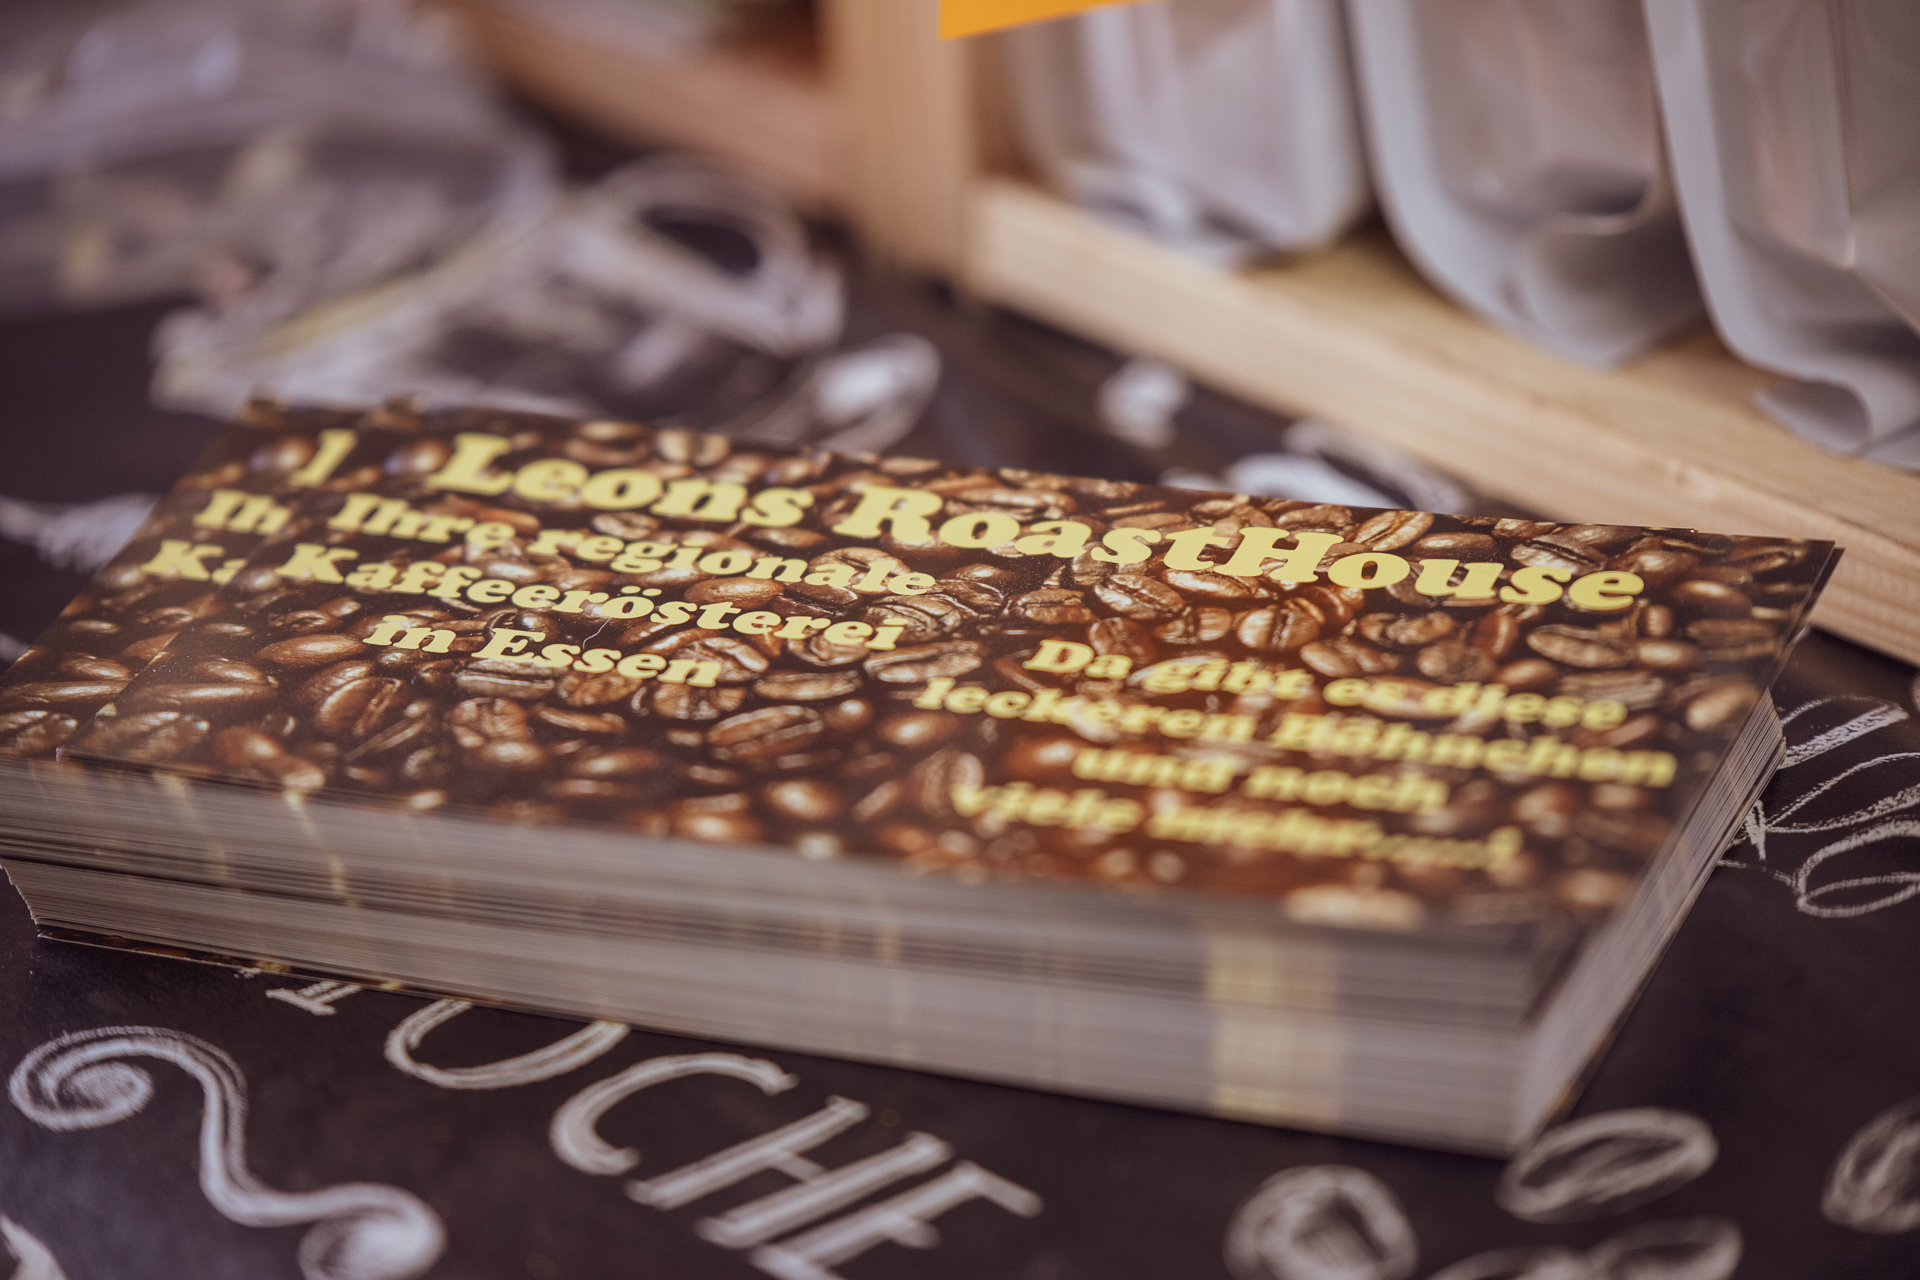 Leons RoastHouse
Ihre regionale
Kaffeerösterei
in Essen
Da gibt es diese
leckeren Bähnchen
und noch
viele mehr......!
Ih
Ka
OCHE